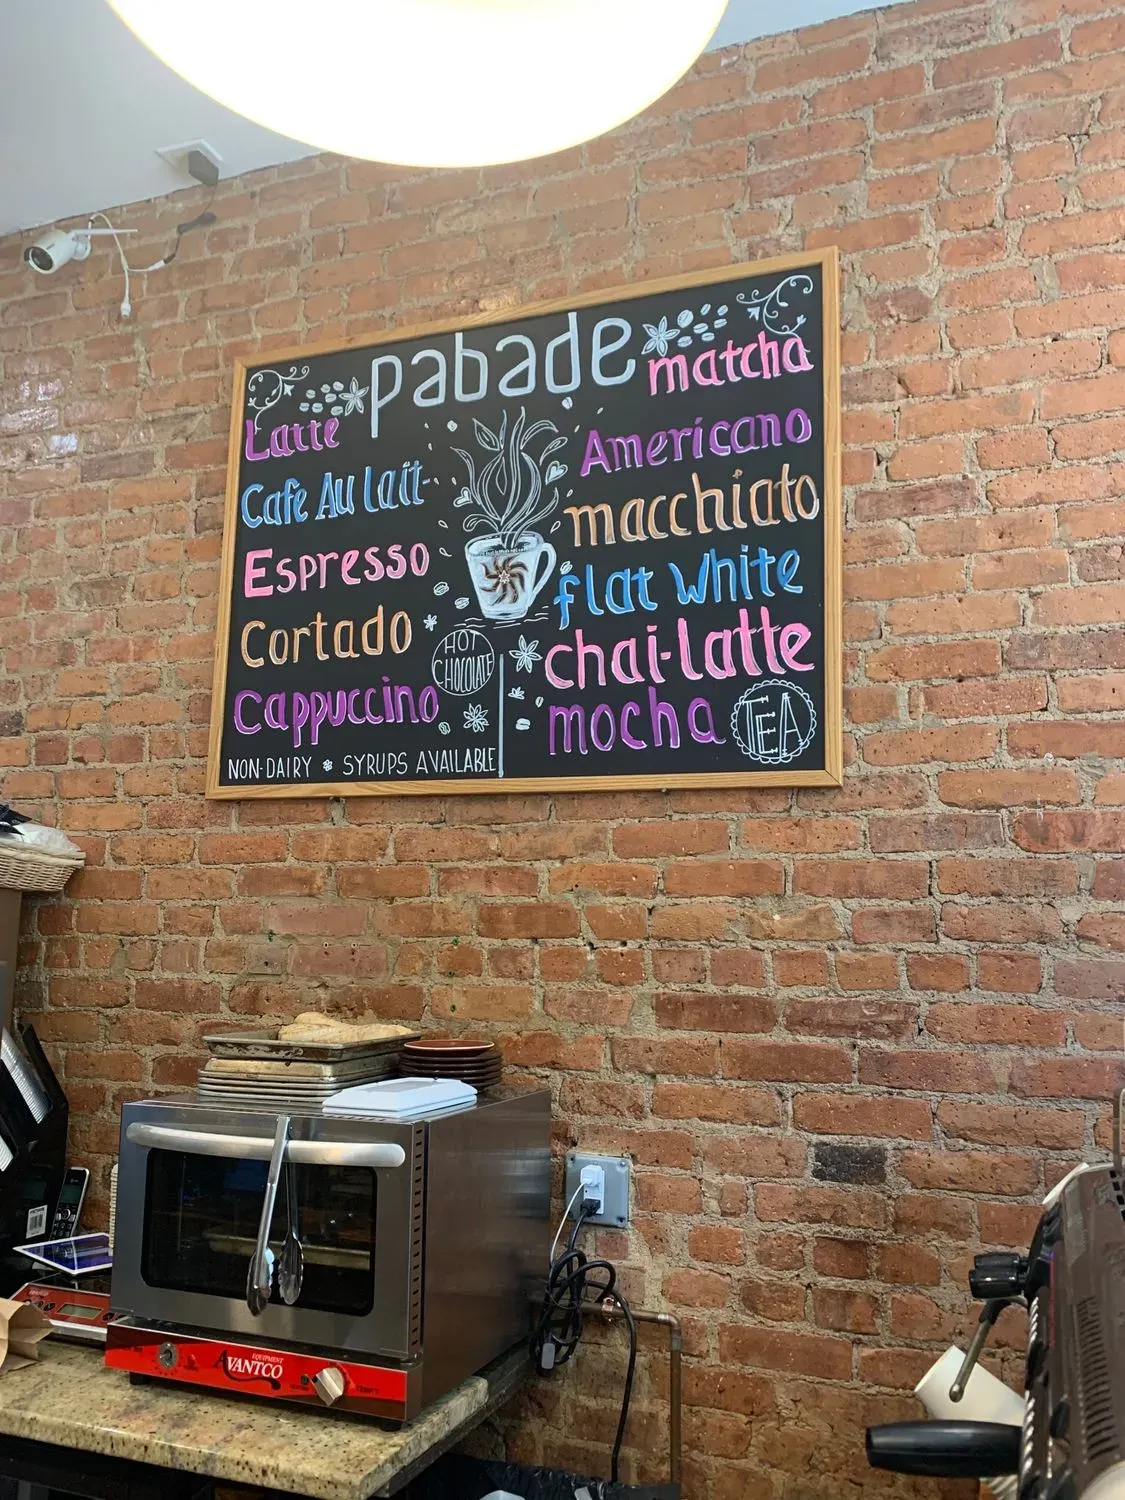 pabade
Latte
Cafe Au lait
Espresso
Cortado
Cappuccino
NON-DAIRY * SYRUPS AVAILABLE
HOT
CHOCOLATE
matcha
Americano
macchiato
flat white
chai-latte
mocha
TEA
EQUIPMENT
AVANTCO